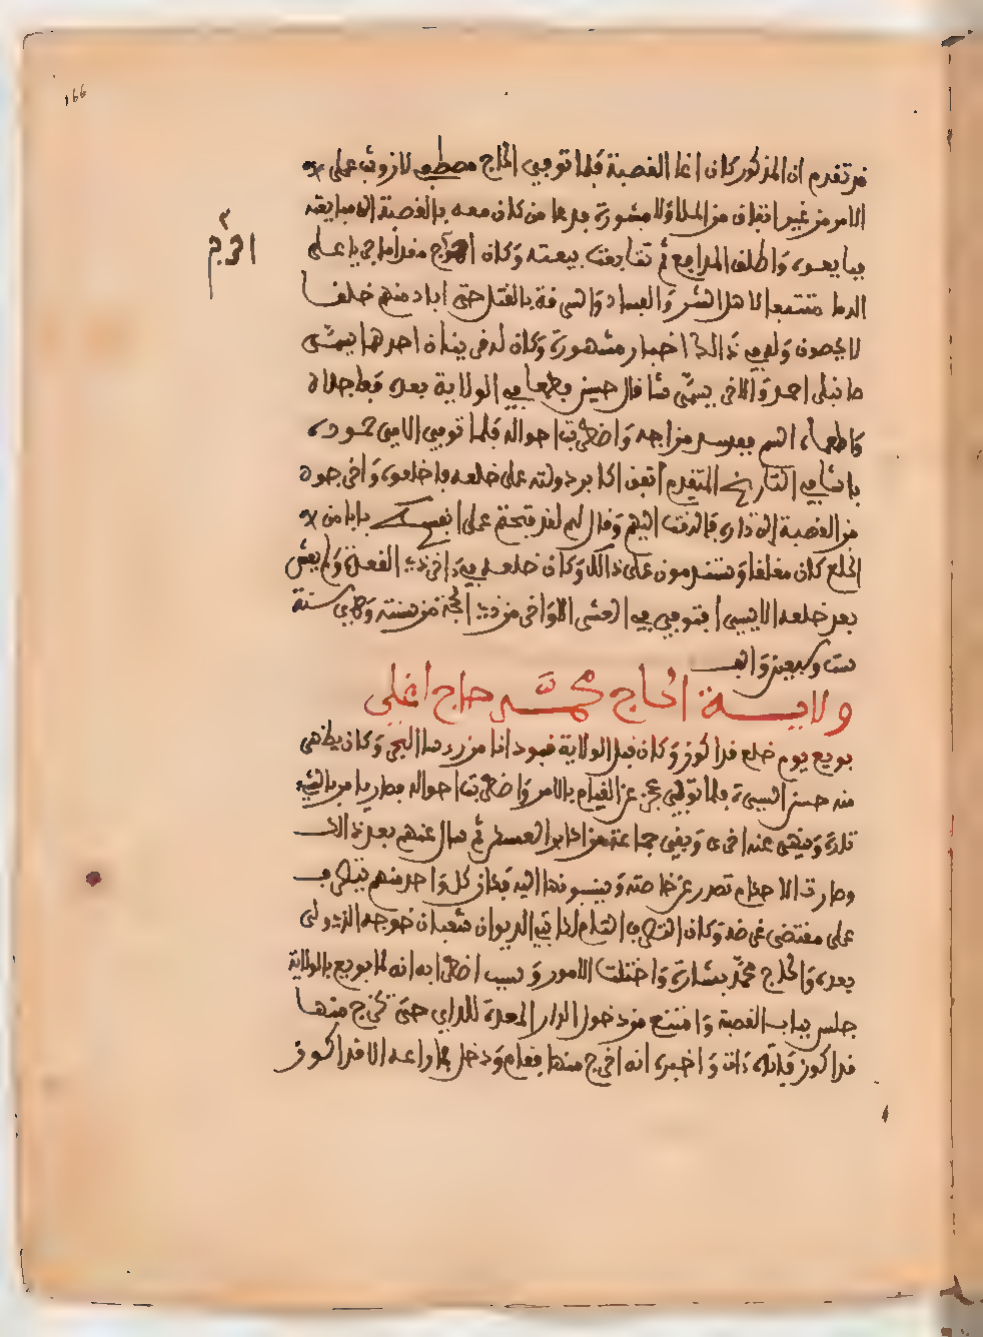 166
قد تقدم ان المذكور كان اغا القصبة فلما توفي الحاج مصطفى لازوث على
الامر من غير اتفاق من الملا ولا مشورة فدعا من كان معه بالقصبة الى مبايعته
فبايعوه واطلق المدافع ثم تتابعت بيعته وكان اهوج مقداما جريا على
اهوج
الدما متتبعا لاهل الشر والفساد والسرقة بالقتل حتى اباد منهم خلقا
لا يحصون وله في ذالك اخبار مشهورة وكان له قرينان احدهما يسمى
طانبلى احمد والاخر يسمى شاقال حسين يطمعا في الولاية بعده
السم ففسد مزاجه واضطربت احواله فلما توفي الامير حموده
باشا في التاريخ المتقدم اتفق اكابر دولته على خلعه فاخلعوه واخرجوه
من القصبة الى داره فالتفت اليهم وقال لهم لقد فتحتم على انفسكم بابا من
الخلع كان مغلقا وستندمون على ذالك وكان خلعه في اخر ذي القعدة ولم يعش
بعد خلعه الا يسيرا فتوفي في العشر الاواخر من ذي الحجة من سنته وهي سنة
ست وسبعين والف
ولاية الحاج محمد حاج اغلي
بويع يوم خلع قرا كوز وكان قبل الولاية قبودانا من رؤسا البحر وكان يظهر
منه حسن السيرة فلما تولى عجز عن القيام بالامر واضطربت احواله فصار يامر بالشيء
تارة وينهى عنه اخرى وبقي جماعة من اكابر العسكر ثم مال عنهم بعد ذالك
وصارت الاحكام تصدر عن خاصته وينسبونها اليه فكان كل واحد منهم يتصرف
على مقتضى غرضه وكان المتصرف التام لكاتب الديوان شعبان خوجه الذي ولي
بعده والحاج محمد بشارة واختلت الامور وسبب اضطرابه انه لما بويع بالولاية
جلس بباب القصبة وامتنع من دخول الدار المعدة للداي حتى تخرج منها
قرا كوز فاتاه ات واخبره انه اخرج منها فقام ودخل فما راعه الا قرا كوز